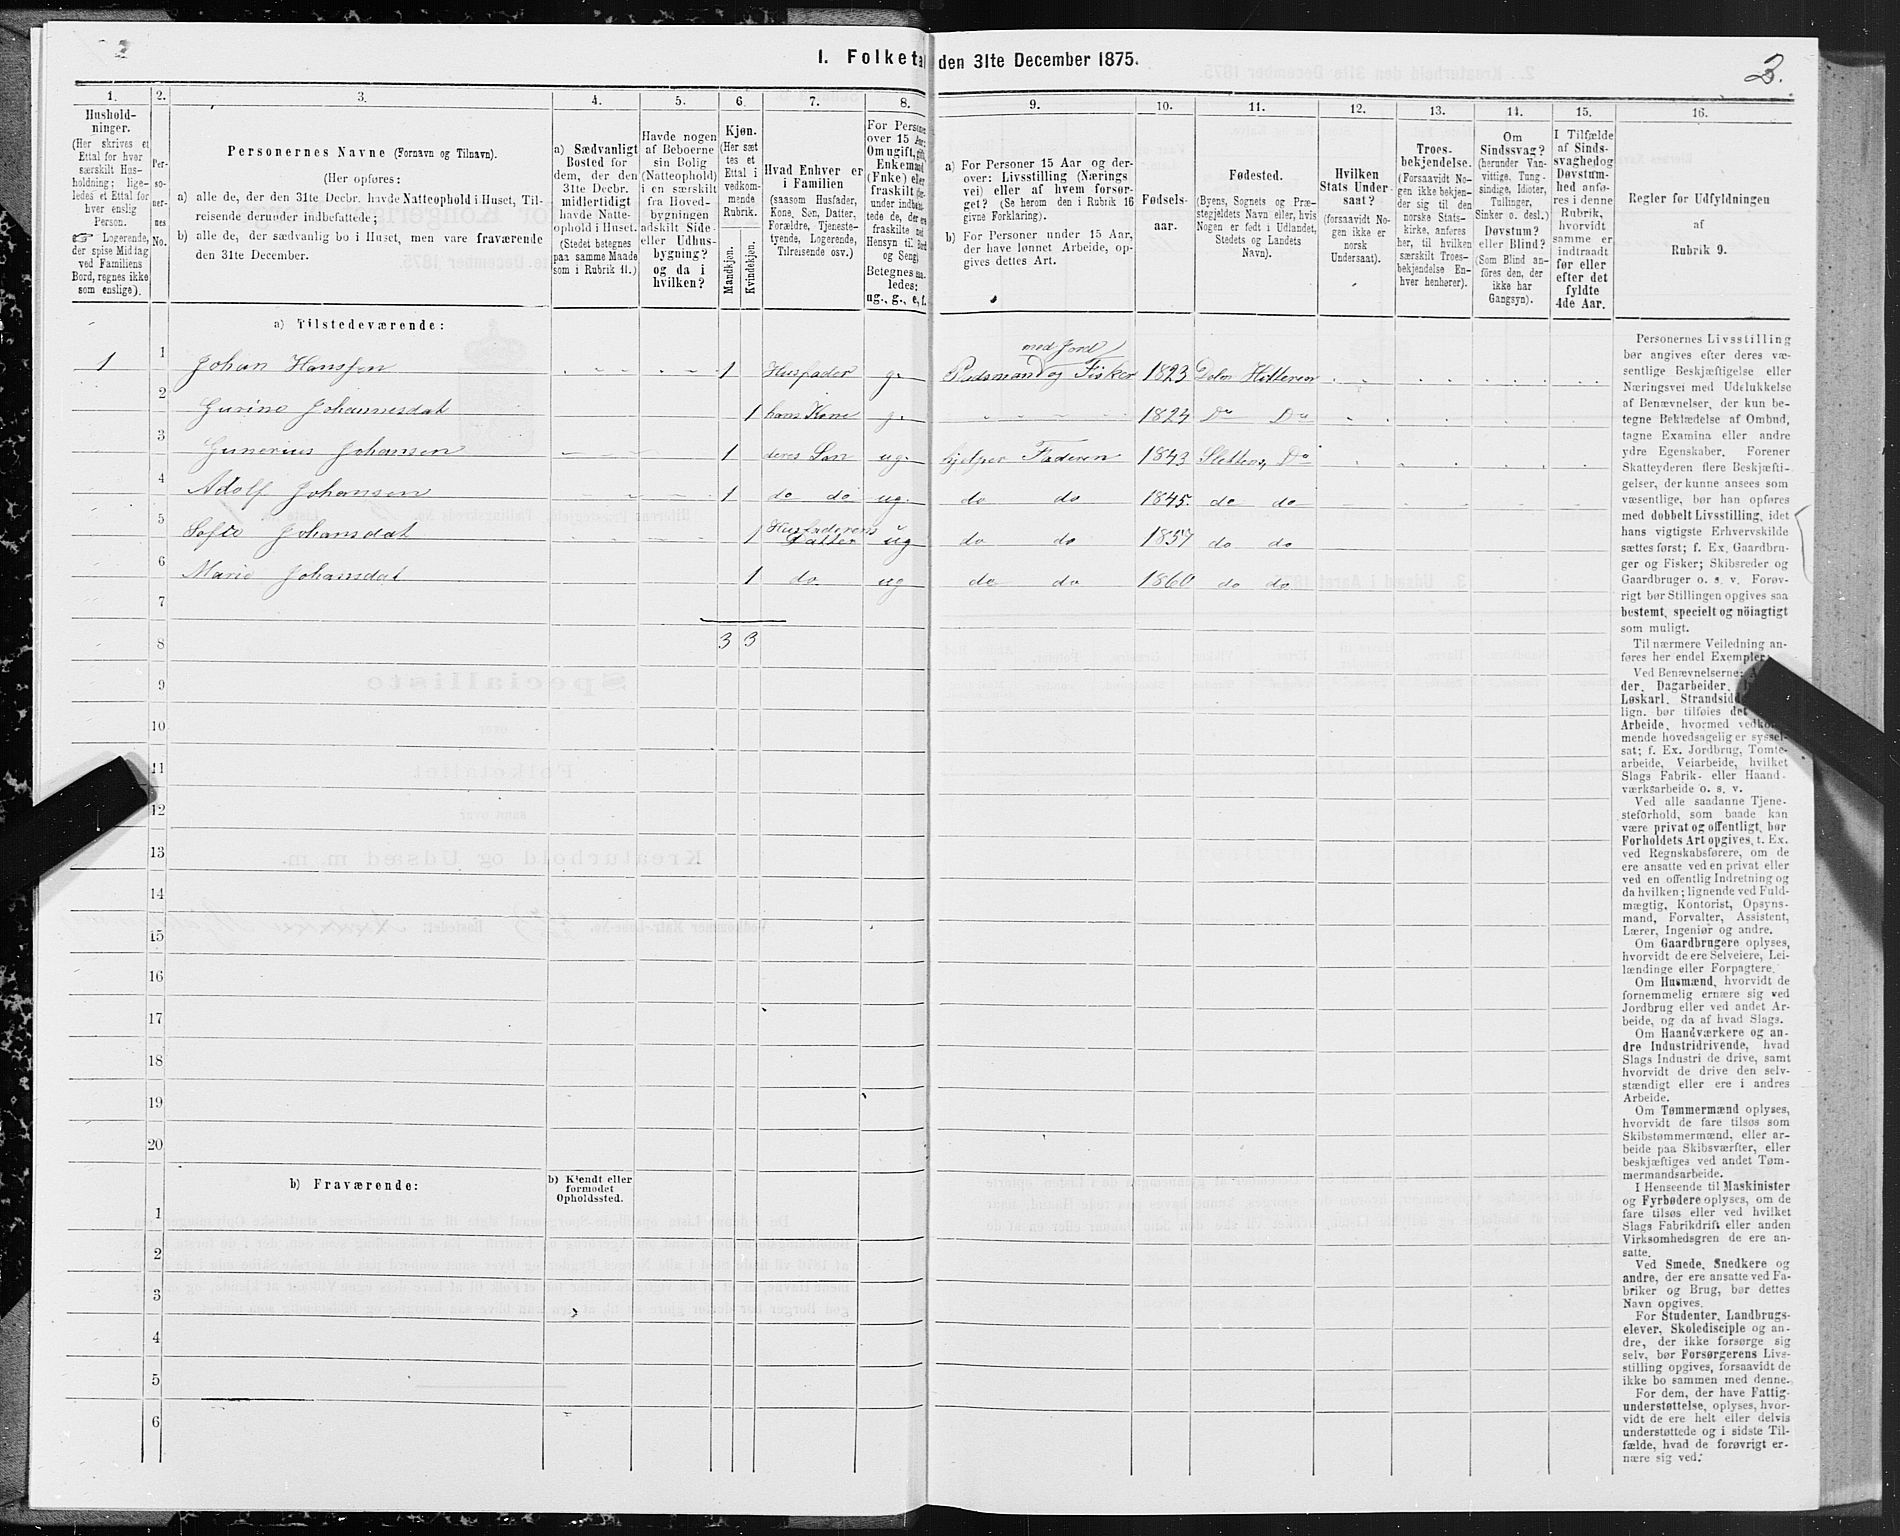 2
1. Folketal den 31te December 1875.
3.
1.
Husholdninger.
(Her skrives et
Ettal for hver
særskilt Husholdning; ligeledes et Ettal for
hver enslig
Person.
☞ Logerende,
der spise Midtag
ved Familiens
Bord, regnes ikke
som enslige).
2.
Personernes
No.
3.
Personernes Navne (Fornavn og Tilnavn).
(Her opføres:
a) alle de, der den 31te Decbr. havde Natteophold i Huset, Tilreisende derunder indbefattede;
b) alle de, der sædvanlig bo i Huset, men vare fraværende
den 31te December.
4.
a) Sædvanligt
Bosted for
dem, der den
31te Decbr.
midlertidigt
havde Natteophold i Huset.
(Stedet betegnes
paa samme Maade
som i Rubrik 11.)
5.
Havde nogen
af Beboerne
sin Bolig
(Natteophold)
i en særskilt
fra Hovedbygningen
adskilt Side-
eller Udhusbygning?
og da i
hvilken?
6.
Kjøn.
(Her sættes et
Ettal i
vedkommende
Rubrik.
Mandkjøn.
Kvindekjøn.
7.
Hvad Enhver er
i Familien
(saasom Husfader,
Kone, Søn, Datter,
Forældre, Tjenestetyende, Logerende,
Tilreisende osv.)
8.
For Personer
over 15 Aar:
Om ugift, gift,
Enkemand
(Enke) eller
fraskilt
Betegnes saaledes:
ug., g., e., f.
9.
a) For Personer 15 Aar og derover: Livsstilling (Næringsvei) eller af hvem forsørget? (Se herom den i Rubrik 16
givne Forklaring).
b) For Personer under 15 Aar,
der have lønnet Arbeide, opgives dettes Art.
10.
Fødselsaar.
11.
Fødested.
(Byens, Sognets og Præstegjeldets Navn eller, hvis
Nogen er født i Udlandet,
Stedets og Landets
Navn).
12.
Hvilken
Stats Undersaat?
(forsaavidt Nogen ikke er
norsk
Undersaat).
13.
Troesbekjendelse.
(Forsaavidt Nogen ikke bekjender sig til den
norske Statskirke, anføres
her, til hvilken
særskilt Troesbekjendelse Enhver henhører).
14.
Om
Sindssvag?
(herunder Vanvittige, Tungsindige, Idioter,
Tullinger,
Sinker o. desl.)
Døvstum?
eller Blind?
(Som Blind anføres den, der
ikke har
Gangsyn).
15.
I Tilfælde
af Sindssvaghed og
Døvstumhed anføres i denne
Rubrik,
hvorvidt
samme er
indtraadt
før eller
efter det
fyldte
4de Aar.
16.
Regler for Udfyldningen
af
Rubrik 9.
a) Tilstedeværende:
1 1 Johan Hanssen 1 Husfader g. med Jord Pladsmand og Fisker 1823 Dolm Hitteren
2 Gurine Johannesdat 1 hans Kone g. 1824 Do Do
3 Gunerius Johansen 1 deres Søn ug. hjelper Faderen 1843 Sletten, Do
4 Adolf Johansen 1 do do ug. do do 1845. do do
5 Sofie Johansdat 1 Husfaderens Datter ug do do 1857 do do
6 Marie Johansdat 1 do. ug do do 1860 do do.
7
8 3 3
9
10
11
12
13
14
15
16
17
18
19
20
b) Fraværende:
b) Kjendt eller
formodet
Opholdssted.
1
2
3
4
5
6
Personernes Livsstilling
bør angives efter deres væsentlige Beskjæftigelse eller
Næringsvei med Udelukkelse
af Benævnelser, der kun betegne Beklædelse af Ombud,
tagne Examina eller andre
ydre Egenskaber. Forener
Skatteyderen flere Beskjæftigelser, der kunne ansees som
væsentlige, bør han opføres
med dobbelt Livsstilling, idet
hans vigtigste Erhvervskilde
sættes først; f. Ex. Gaardbruger og Fisker; Skibsreder og
Gaardbruger o. s. v. Forøvrigt bør Stillingen opgives saa
bestemt, specielt og nöiagtigt
som muligt.
Til nærmere Veiledning anføres her endel Exempler:
Ved Benævnelserne:
Dagarbeider,
Løskarl, Strandsidder
lign. bør tilføies det
Arbeide, hvormed vedkommende hovedsagelig er sysselsat; f. Ex. Jordbrug, Tomtearbeide, Veiarbeide, hvilket
Slags Fabrik- eller Haandværksarbeide o. s. v.
Ved alle saadanne Tjenesteforhold, som baade kan
være privat og offentligt, bør
Forholdets Art opgives, t. Ex.
ved Regnskabsførere, om de
ere ansatte ved en privat eller
ved en offentlig Indretning og
da hvilken; lignende ved Fuldmægtig, Kontorist, Opsynsmand, Forvalter, Assistent,
Lærer, Ingeniør og andre.
Om Gaardbrugere oplyses,
hvorvidt de ere Selveiere, Leilændinge eller Forpagtere.
Om Husmænd, hvorvidt de
fornemmelig ernære sig ved
Jordbrug eller ved andet Arbeide, og da af hvad Slags.
Om Haandværkere og andre Industridrivende, hvad
Slags Industri de drive, samt
hvorvidt de drive den selvstændigt eller ere i andres
Arbeide.
Om Tømmermænd oplyses,
hvorvidt de fare tilsøs som
Skibstømmermænd, eller arbeide paa Skibsværfter, eller
beskjæftiges ved andet Tømmermandsarbeide.
I Henseende til Maskinister
og Fyrbødere oplyses, om de
fare tilsøs eller ved hvilket
Slags Fabrikdrift eller anden
Virksomhedsgren de ere ansatte.
Ved Smede, Snedkere og
andre, der ere ansatte ved Fabriker og Brug, bør dettes
Navn opgives.
For Studenter, Landbrugselever, Skoledisciple og andre, der ikke forsørge sig
selv, bør Forsørgerens Livsstilling opgives, forsaavidt de
ikke bo sammen med denne.
For dem, der have Fattigunderstøttelse, oplyses, hvorvidt de ere helt eller delvis
understøttede og i sidste Tilfælde, hvad de forøvrigt ernære sig ved.